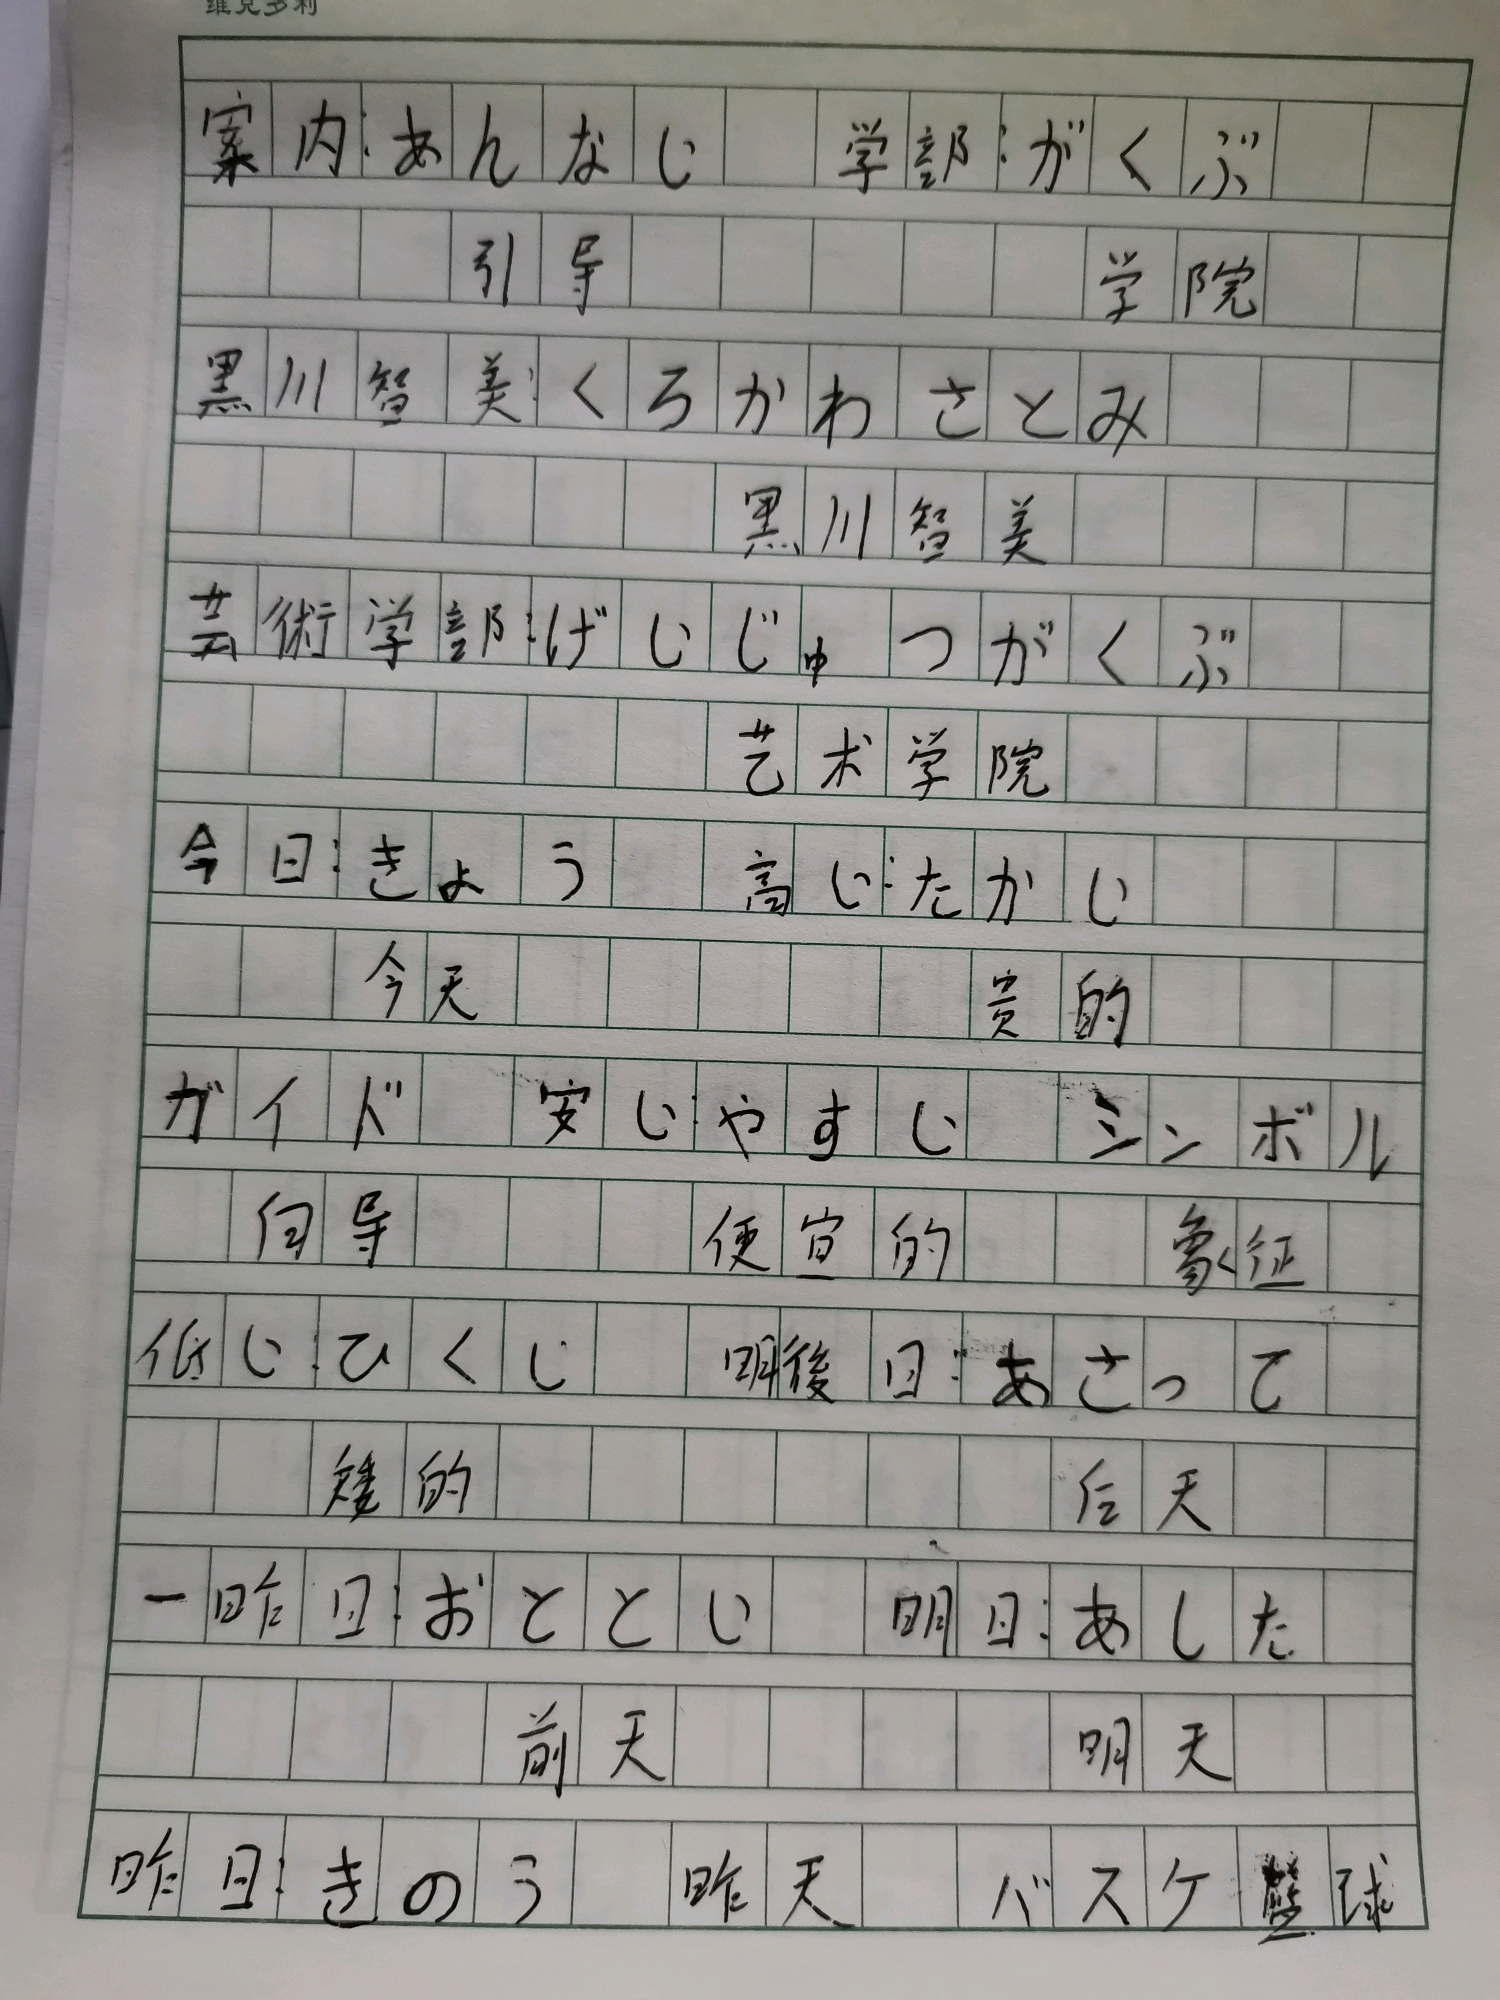 维克多利
案内:あんない 学部:がくぶ
引导 学院
黒川智美:くろかわさとみ
黒川智美
芸術学部:げいじゅつがくぶ
艺术学院
今日:きょう 高い:たかい
今天 贵的
ガイド 安い:やすい シンボル
向导 便宜的 象征
低い:ひくい 明後日:あさって
矮的 后天
一昨日:おととい 明日:あした
前天 明天
昨日:きのう 昨天 バスケ 篮球